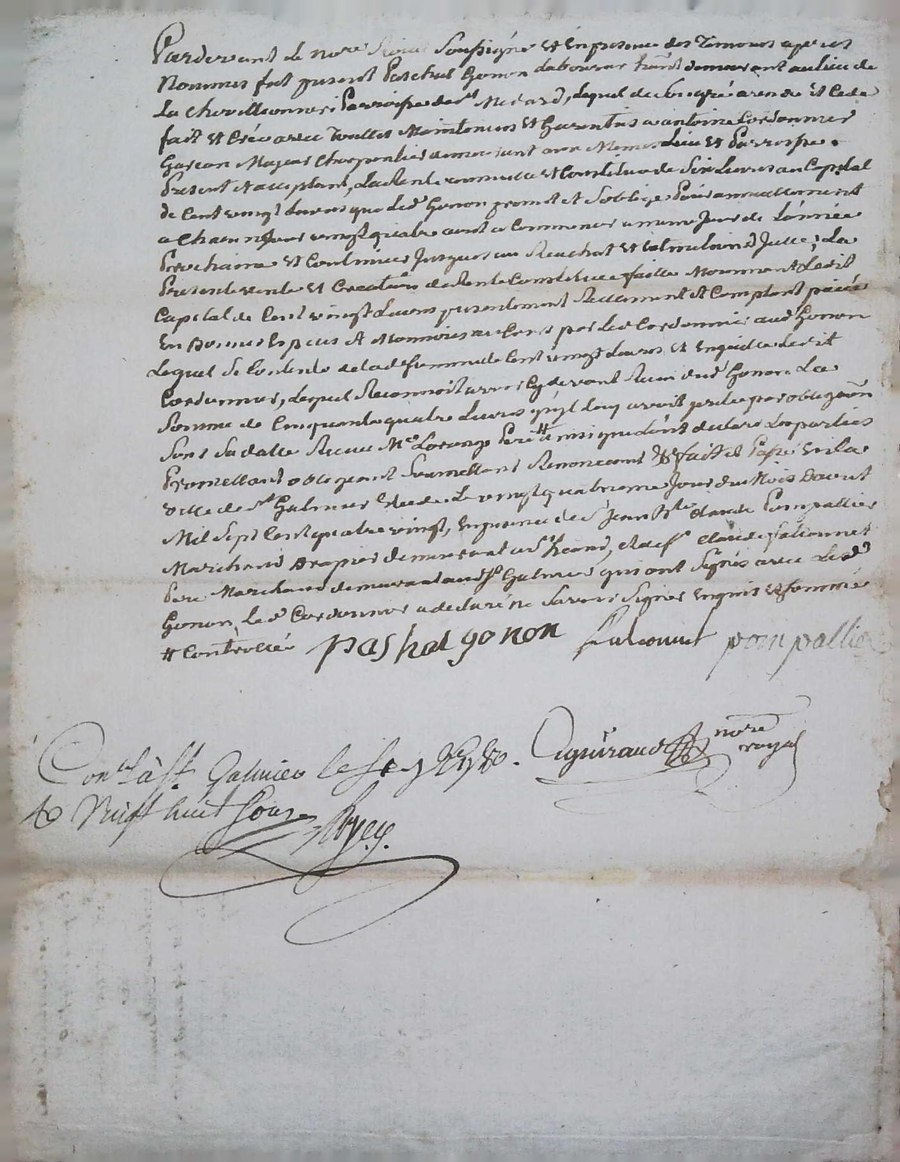 Pardevant le no.re Royal Soussigné et En presence des Temoins apres
Nommés fut present Paschal Gonon Laboureur hant demeurant au lieu de
La Parroisse de St Medard, lequel de bon gré a rendu et Cede
fait et Créé avec Touttes Maintenues et Garenties a antoine Cordonnier
Garcon Majeur Charpentier demeurant aux Memes Lieu et Parroisse
Present et acceptant, La Rente annuelle et Constituée de Six Livres au Capital
de Cent vingt Livres que led. Gonon promet et S'oblige Paier annuellement
a Chacun Jour vingt quatre aout a Commencer a meme Jour de L'année
Prochaine et Continuer Jusques au Rachat et La
Presente vente et Creation de Rente Constituée faitte Moiennant Ledit
Capital de Cent vingt Livres presentement Reellement et Comptant paiée
En Bonnes Especes et Monnoies au Cours par led Cordonnier aud Gonon
Lequel Se Contente de lad Somme de Cent vingt Livres et En quitte ledit
Cordonnier, Lequel Reconnoit avoir Cydevant Recu dud Gonon La
Somme de Cinquante quatre Livres qu'il Luy avoit pretée par obligation
Sous Sa datte Recue Me Pere # ainsi que l'ont declaré Les parties
Promettant obligeant Soumettant Renoncant &c fait et Passé En la
ville de St Galmier Etude Le vingt quatrieme Jour du Mois Daout
Mil Sept Cent quatre vingt, En presence de Sr Jean Claude Pompallier
Marchand Drapier demeurant a St heand, et de Sr Claude falconnet
Pere Marchand demeurant aud St Galmier qui ont Signés avec Led
Gonon, led Cordonnier a declaré ne Savoir Signer Enquis et Sommé
# Controllée pashal gonon falconnet pompallier
Con.lé à St. Galmier le 1780. Aguiraud no.re royal
R Vingt huit Sous